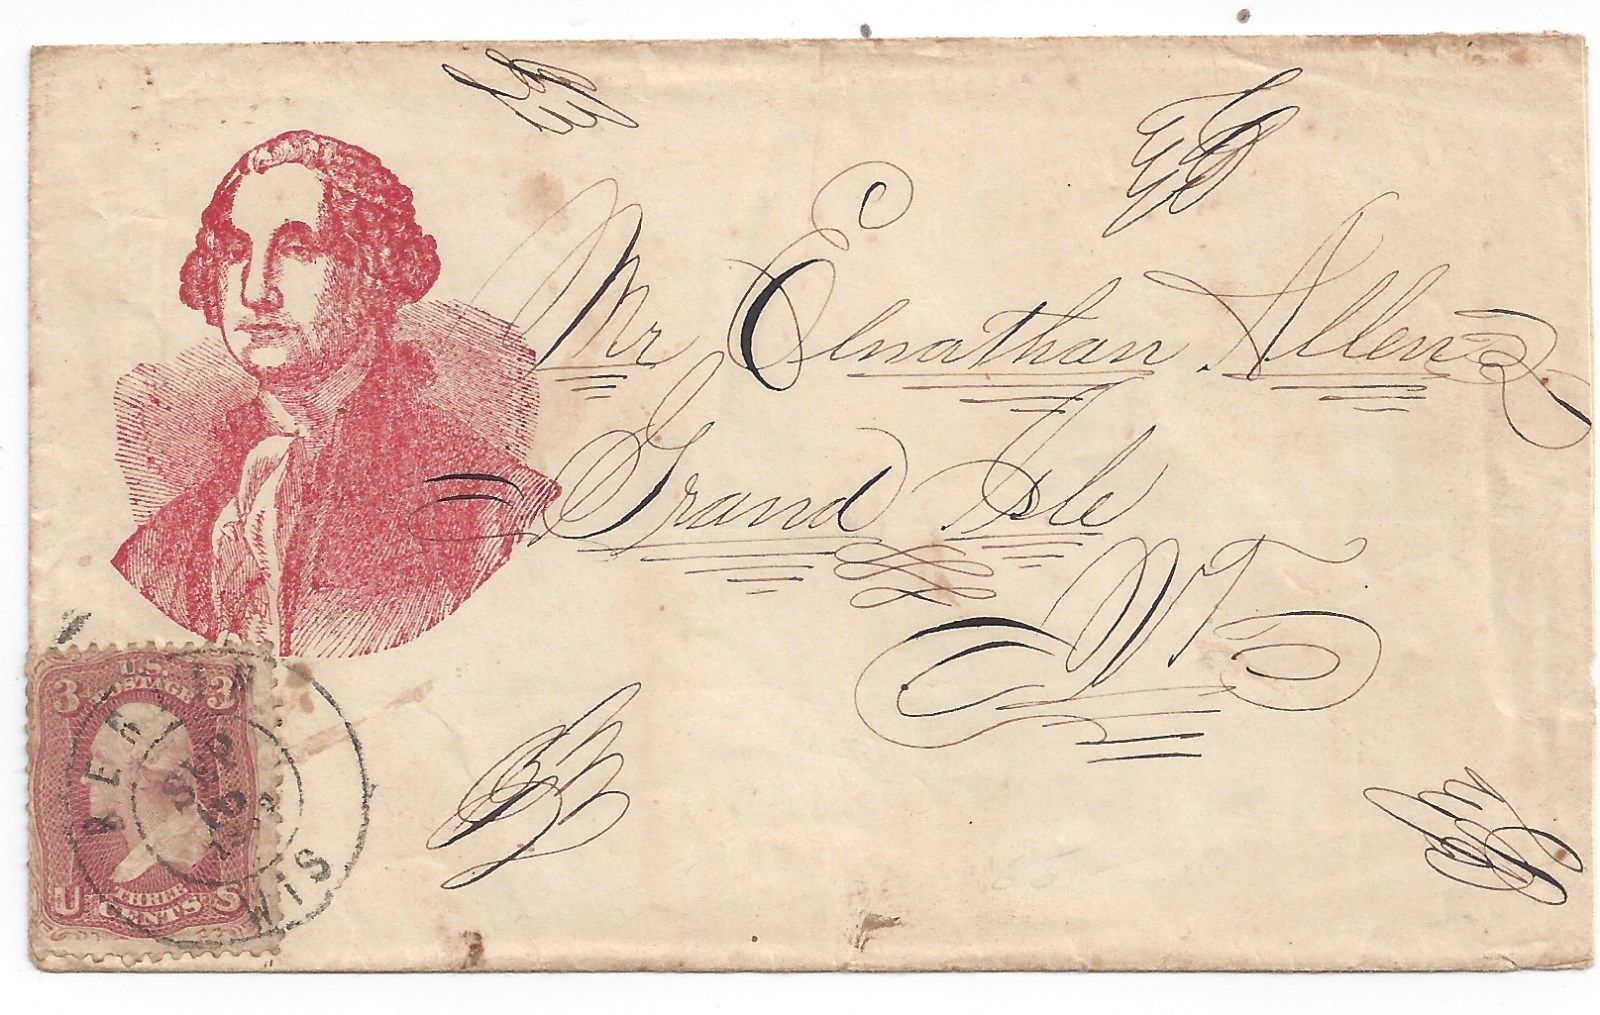 Mr Elnathan Allen
Grand Isle
VT
3 U.S. 3
POSTAGE
U THREE S
CENTS
BERLIN
SEP
WIS